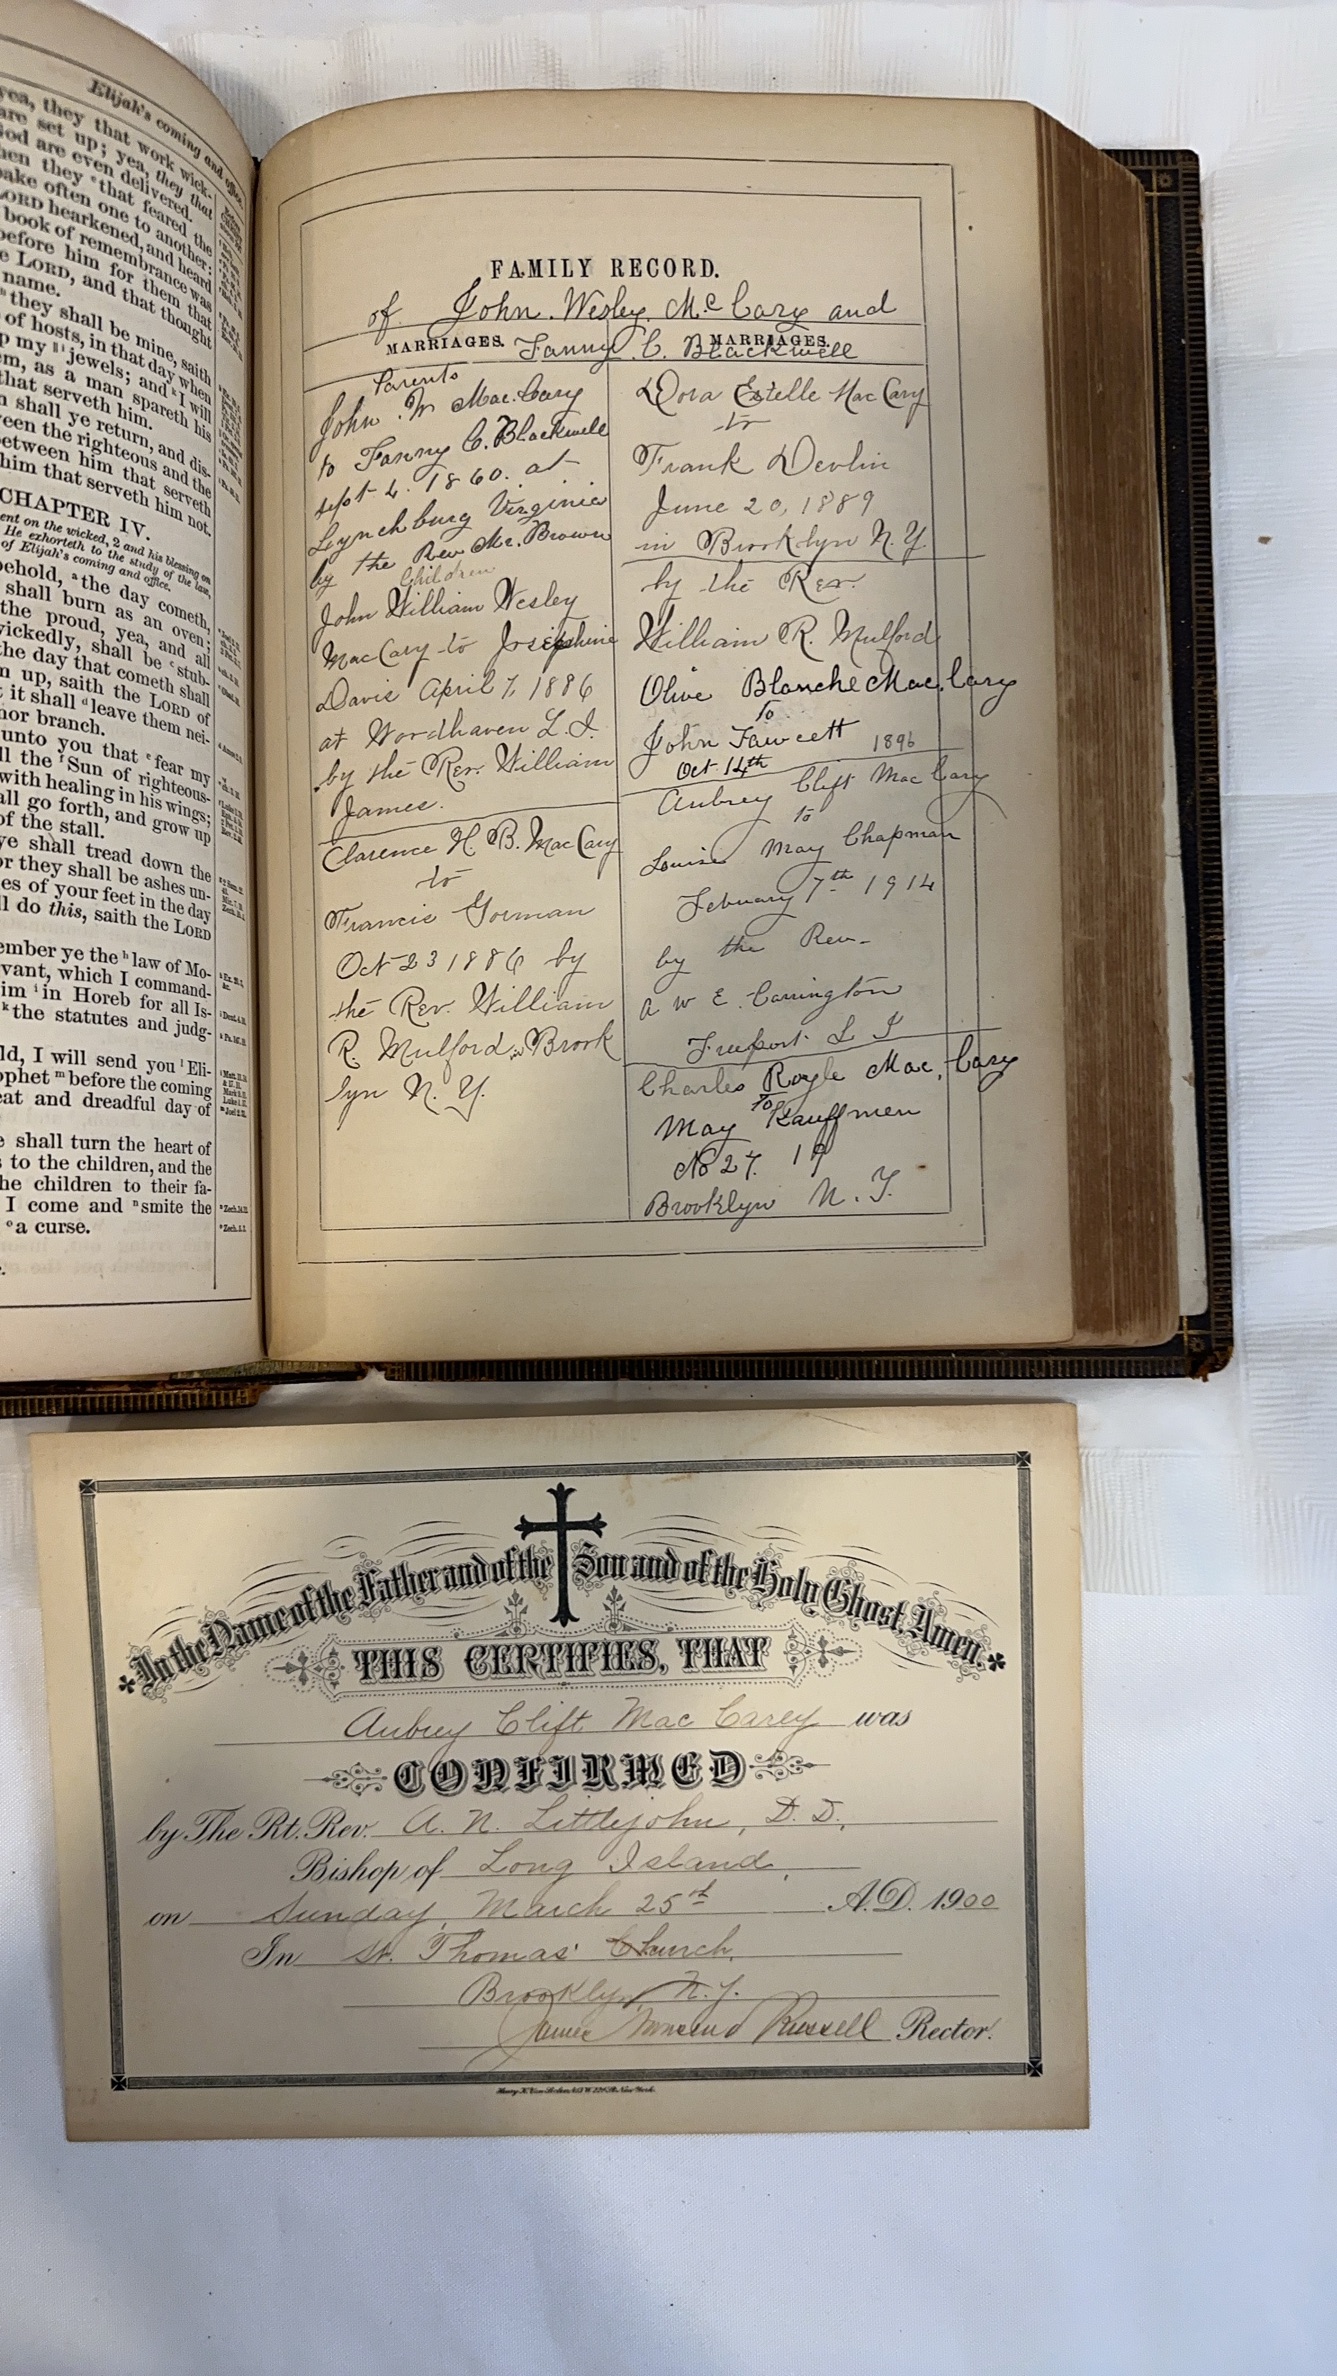 Elijah's coming and office.
yea, they that work wick-
are set up; yea, they that
God are even delivered.
then they that feared the
spake often one to another:
LORD hearkened, and heard
book of remembrance was
before him for them that
e LORD, and that thought
name.
they shall be mine, saith
of hosts, in that day when
p my jewels; and I will
em, as a man spareth his
that serveth him.
n shall ye return, and dis-
ween the righteous and the
between him that serveth
him that serveth him not.
CHAPTER IV.
ent on the wicked, 2 and his blessing on
He exhorteth to the study of the law,
of Elijah's coming and office.
behold, the day cometh,
shall burn as an oven;
the proud, yea, and all
wickedly, shall be stub-
the day that cometh shall
n up, saith the LORD of
t it shall leave them nei-
nor branch.
unto you that fear my
ll the Sun of righteous-
with healing in his wings;
all go forth, and grow up
of the stall.
ye shall tread down the
or they shall be ashes un-
es of your feet in the day
ll do this, saith the LORD
ember ye the law of Mo-
vant, which I command-
im in Horeb for all Is-
the statutes and judg-
ld, I will send you Eli-
ophet before the coming
eat and dreadful day of
e shall turn the heart of
s to the children, and the
he children to their fa-
I come and smite the
a curse.
FAMILY RECORD.
of John Wesley McCary and
MARRIAGES. MARRIAGES.
Fanny C. Blackwell
Parents
John W MacCary
to Fanny C. Blackwell
sept 4. 1860. at
Lynchburg Virginia
by the Rev Mr. Brown
Children
John William Wesley
MacCary to Josephine
Davis April 7, 1886
at Wordhaven L.I.
by the Rev. William
James.
Clarence H B. MacCary
to
Francis Gorman
Oct 23 1886 by
the Rev. William
R. Mulford, in Brook
lyn N. Y.
Dora Estelle MacCary
to
Frank Devlin
June 20, 1889
in Brooklyn N. Y
by the Rev.
William R. Mulford
Olive Blanche Mac Cary
To
John Fawcett 1896
Oct 14th
Aubrey Clift Mac Cary
to
Louise May Chapman
February 7th 1914
by the Rev-
A W E. Carrington
Freeport L I
Charles Royle Mac, Cary
To
May Kauffmen
No 27. 19
Brooklyn N. Y.
In the Name of the Father and of the Son and of the Holy Ghost, Amen.
THIS CERTIFIES, THAT
Aubrey Clift Mac Carey was
CONFIRMED
by The Rt. Rev. A. N. Littlejohn, D. D.,
Bishop of Long Island,
on Sunday, March 25th A.D. 1900
In St. Thomas' Church,
Brooklyn, N. Y.
James Townsend Russell Rector.